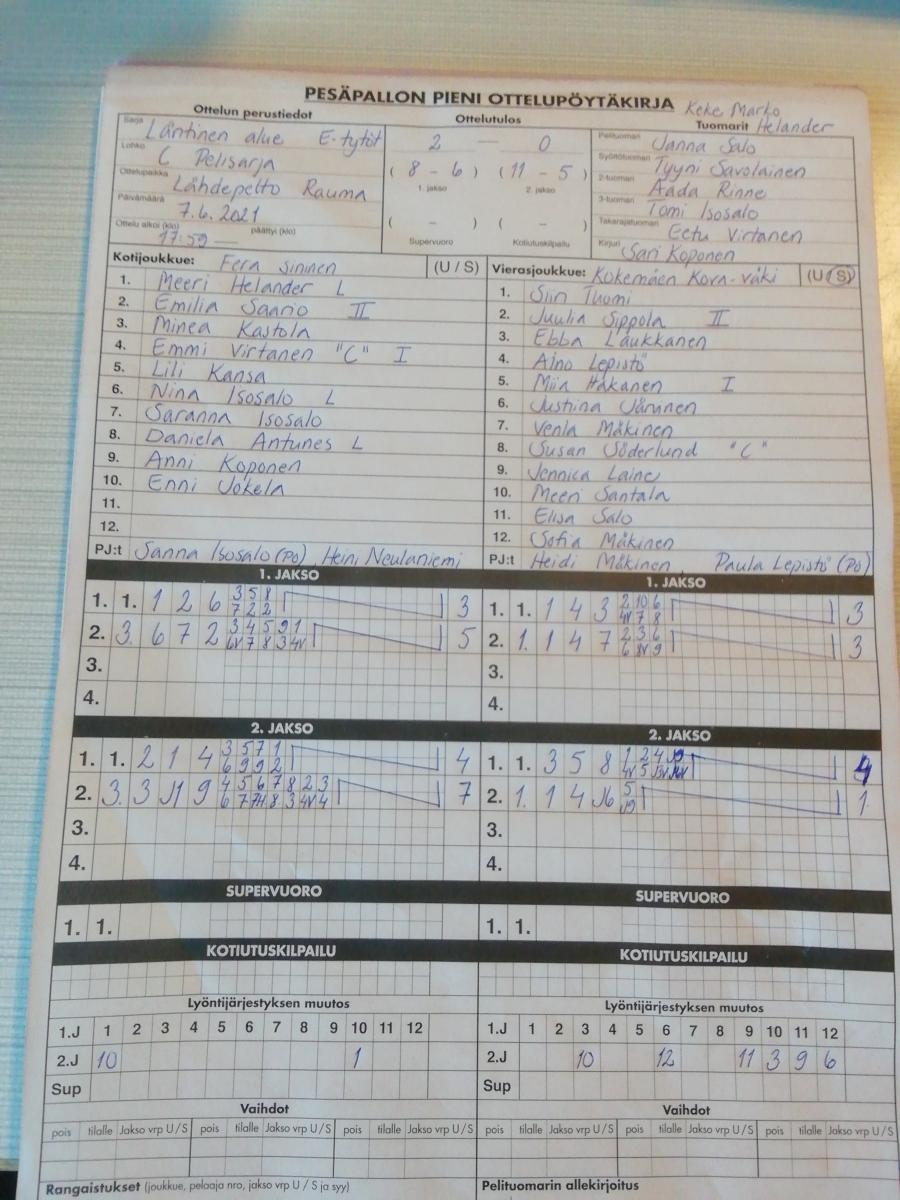 PESÄPALLON PIENI OTTELUPÖYTÄKIRJA Keke Marko
Ottelun perustiedot Ottelutulos Tuomarit Helander
Sarja Läntinen alue E-tytöt 2 — 0 Pelituomari Janna Salo
Lohko C Pelisarja (8 - 6) (11 - 5) Syöttötuomari Tyyni Savolainen
1. jakso 2. jakso 2-tuomari Aada Rinne
Ottelupaikka Lähdepelto Rauma 3-tuomari Tomi Isosalo
Päivämäärä 7.6.2021 ( - ) ( - ) Takarajatuomari Eetu Virtanen
Ottelu alkoi (klo) 17:59 — päättyi (klo) Supervuoro Kotiutuskilpailu Kirjuri Sari Koponen
Kotijoukkue: Fera sininen (U / S) Vierasjoukkue: Kokemäen Kova-väki (U / S)
1. Meeri Helander L 1. Siiri Tuomi
2. Emilia Saario II 2. Juulia Sippola II
3. Minea Kastola 3. Ebba Laukkanen
4. Emmi Virtanen "C" I 4. Aino Lepistö
5. Lili Kansa 5. Miia Hakanen I
6. Nina Isosalo L 6. Justiina Järvinen
7. Saranna Isosalo 7. Venla Mäkinen
8. Daniela Antunes L 8. Susan Söderlund "C"
9. Anni Koponen 9. Jennica Laine
10. Enni Jokela 10. Meeri Santala
11. 11. Elisa Salo
12. 12. Sofia Mäkinen
PJ:t Sanna Isosalo (PO) Heini Neulaniemi PJ:t Heidi Mäkinen Paula Lepistö (PO)
1. JAKSO 1. JAKSO
1. 1. 1 2 6 3 5 8 3 1. 1. 1 4 3 2 10 6 3
7 2 2 4V 7 8
2. 3. 6 7 2 3 4 5 9 1 5 2. 1. 1 4 7 2 3 6 3
6V 7 8 3 4V 6 8V 9
3. 3.
4. 4.
2. JAKSO 2. JAKSO
1. 1. 2 1 4 3 5 7 1 4 1. 1. 3 5 8 1 2 4 J9 4
6 9 9 2 4V 5
2. 3. 3 J1 9 4 5 6 7 8 2 3 7 2. 1. 1 4 J6 5 1
6 7 8 3 4V 4 J9
3. 3.
4. 4.
SUPERVUORO SUPERVUORO
1. 1. 1. 1.
KOTIUTUSKILPAILU KOTIUTUSKILPAILU
Lyöntijärjestyksen muutos Lyöntijärjestyksen muutos
1.J 1 2 3 4 5 6 7 8 9 10 11 12 1.J 1 2 3 4 5 6 7 8 9 10 11 12
2.J 10 1 2.J 10 12 11 3 9 6
Sup Sup
Vaihdot Vaihdot
pois tilalle Jakso vrp U / S pois tilalle Jakso vrp U / S pois tilalle Jakso vrp U / S pois tilalle Jakso vrp U / S pois tilalle Jakso vrp U / S pois tilalle Jakso vrp U / S
Rangaistukset (joukkue, pelaaja nro, jakso vrp U / S ja syy) Pelituomarin allekirjoitus